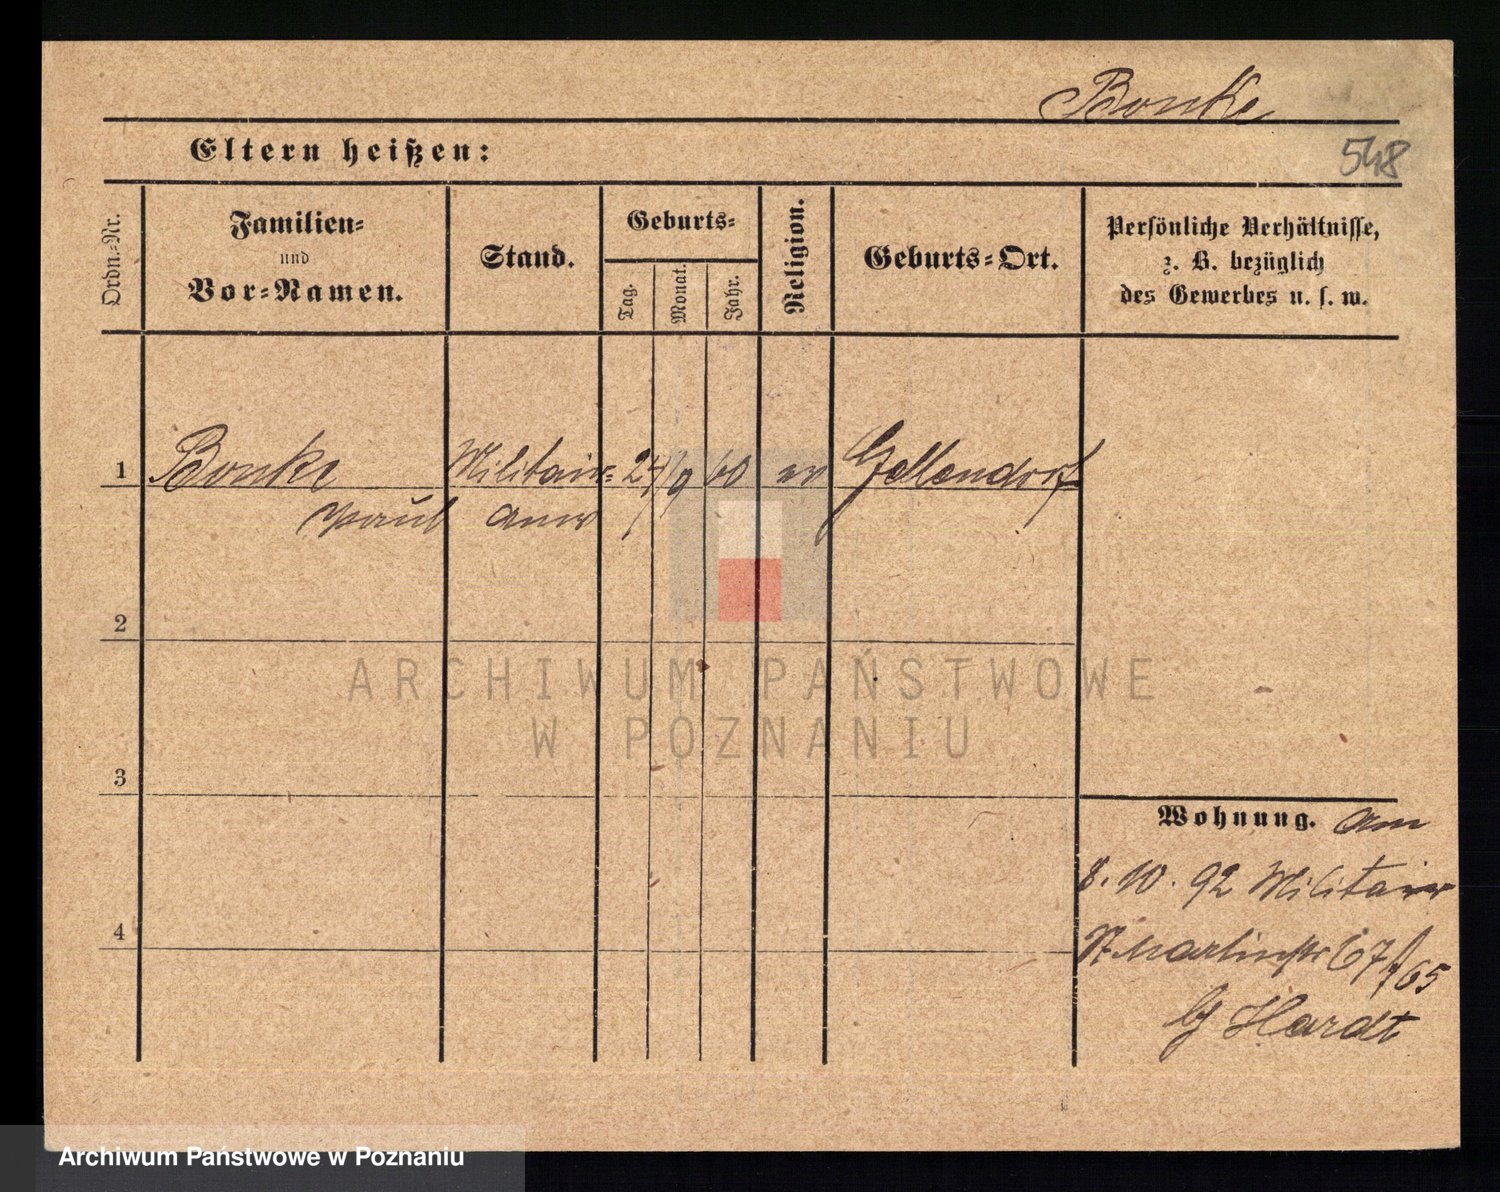 Bonke
548
Eltern heißen:
Ordn.=Nr.
Familien=
und
Vor=Namen.
Stand.
Geburts=
Tag.
Monat.
Jahr.
Religion.
Geburts=Ort.
Persönliche Verhältnisse,
z. B. bezüglich
des Gewerbes u. s. w.
1 Bonke Militair= 24/9 60 ev Gellendorf
Paul Anw
2
ARCHIWUM PAŃSTWOWE
W POZNANIU
3
Wohnung. am
8. 10. 92 Militair
St Martinstr 67/65
Hardt
4
Archiwum Państwowe w Poznaniu